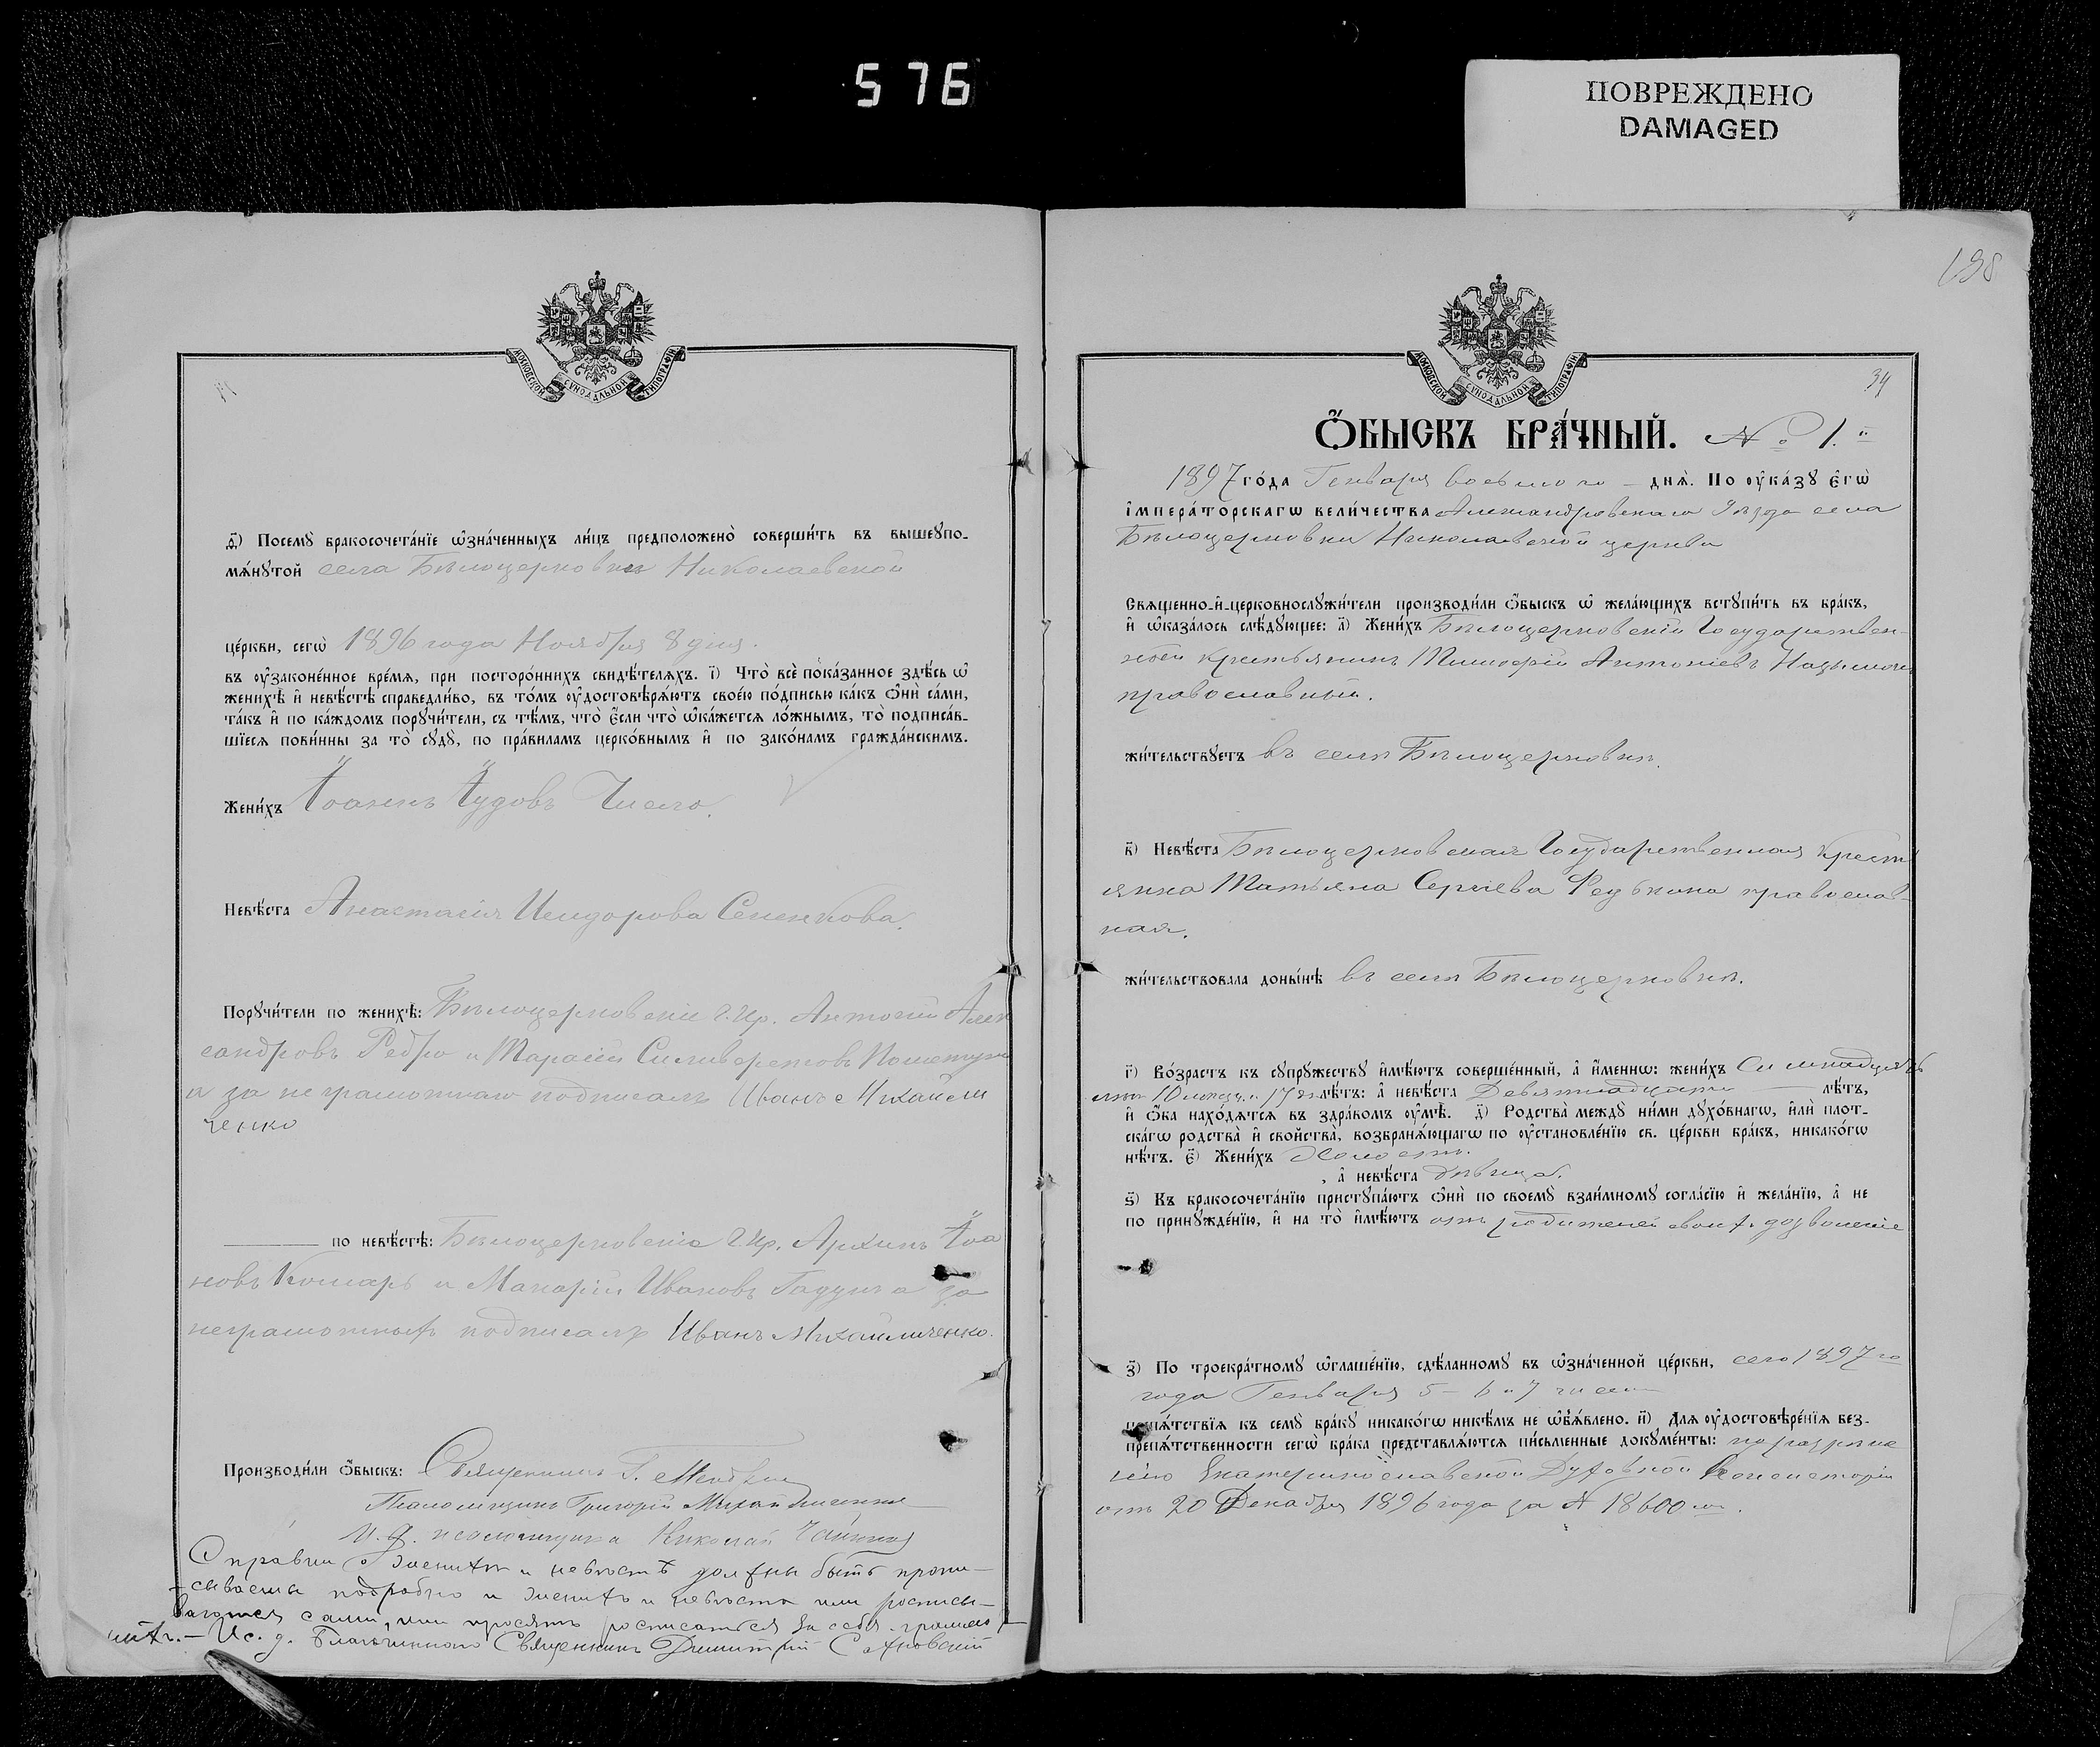 576
ПОВРЕЖДЕНО
DAMAGED
МОСКОВСКОЙ СѴНОДАЛЬНОЙ ТИПОГРАФІИ
д҃) Посемꙋ бракосочета́нїе ѡ҆зна́ченныхъ ли́цъ предположено̀ соверши́ть въ вышеꙋпо-
мѧ́нꙋтой села Бѣлоцерковки Николаевской
це́ркви, сегѡ̀ 1896 года Ноября 8 дня.
въ ᲂу҆зако́ненное вре́мѧ, при посторо́ннихъ свидѣ́телѧхъ. і҃) Что̀ всѐ пока́занное здѣ́сь ѡ҆
женихѣ̀ и҆ невѣ́стѣ справедли́во, въ то́мъ ᲂу҆достовѣрѧ́ютъ свое́ю по́дписью ка́къ ѻ҆нѝ са́ми,
та́къ и҆ по ка́ждомъ порꙋчи́тели, съ тѣ́мъ, что̀ є҆́сли что̀ ѡ҆ка́жетсѧ ло́жнымъ, то̀ подписа́в-
шїесѧ пови́нны за то̀ сꙋдꙋ̀, по пра́виламъ церко́внымъ и҆ по зако́намъ гражда́нскимъ.
Жени́хъ Іоаннъ Іудовъ Число.
Невѣ́ста Анастасія Исидорова Сененкова.
Порꙋчи́тели по женихѣ̀: Бѣлоцерковскіе г. кр. Антоній Алек
сандровъ Редро и Тарасій Силиверстовъ
а за неграмотнаго подписалъ Иванъ Михайли
ченко
по невѣ́стѣ: Бѣлоцерковскіе г. кр. Архипъ Іоа
новъ Комарь и Макарій Ивановъ за
неграмотныхъ подписалъ Иванъ Михайличенко.
Производи́ли ѻ҆́быскъ: Священникъ Г.
Псаломщикъ Григорій Михайличенко
И. д. псаломщика Николай
Справки о женихѣ и невѣстѣ должны быть пропи-
сываемы подробно и женихъ и невѣста или росписы-
ваются сами, или просятъ росписаться за себя грамот-
ныхъ. — Ис. д. Благочиннаго Священникъ Димитрій
34
МОСКОВСКОЙ СѴНОДАЛЬНОЙ ТИПОГРАФІИ
Ѻ҆́БЫСКЪ БРА́ЧНЫЙ. № 1.й
1897 го́да Генваря восьмого дня̀. По ᲂу҆ка́зꙋ є҆гѡ̀
і҆мпера́торскагѡ вели́чества Александровскаго Уѣзда села
Бѣлоцерковки Николаевской церкви
Свѧщенно-и҆-церковнослꙋжи́тели производи́ли ѻ҆́быскъ ѡ҆ жела́ющихъ встꙋпи́ть въ бра́къ,
и҆ ѡ҆каза́лось слѣ́дꙋющее: а҃) Жени́хъ Бѣлоцерковскій Государствен-
ный крестьянинъ Тимофій Антоніевъ
православный.
жи́тельствꙋетъ въ селѣ Бѣлоцерковкѣ.
в҃) Невѣ́ста Бѣлоцерковская Государственная крест
янка Татьяна Сергіева православ-
ная.
жи́тельствовала доны́нѣ въ селѣ Бѣлоцерковкѣ.
г҃) Во́зрастъ къ сꙋпрꙋ́жествꙋ и҆мѣ́ютъ соверше́нный, а҆ и҆́меннѡ: жени́хъ Семнадцять
лѣтъ 10 месяц. и 17 дн лѣ́тъ: а҆ невѣ́ста Девятнадцати лѣ́тъ,
и҆ ѻ҆́ба нахо́дѧтсѧ въ здра́вомъ ᲂу҆мѣ̀. д҃) Родства̀ междꙋ ни́ми дꙋхо́внагѡ, и҆лѝ плот-
ска́гѡ родства̀ и҆ сво́йства, возбранѧ́ющагѡ по ᲂу҆становле́нїю св. це́ркви бра́къ, никако́гѡ
нѣ́тъ. є҃) Жени́хъ Холостъ.
, а҆ невѣ́ста дѣвица.
ѕ҃) Къ бракосочета́нїю пристꙋпа́ютъ ѻ҆нѝ по своемꙋ̀ взаи́мномꙋ согла́сїю и҆ жела́нїю, а҆ не
по принꙋжде́нїю, и҆ на то̀ и҆мѣ́ютъ отъ родителей своихъ дозволеніе
з҃) По троекра́тномꙋ ѡ҆глаше́нїю, сдѣ́ланномꙋ въ ѡ҆зна́ченной це́ркви, сего 1897 го
года Генваря 5 - 6 и 7 чиселъ
препѧ́тствїѧ къ семꙋ̀ бра́кꙋ никако́гѡ никѣ́мъ не ѡ҆б̾ѧ́влено. и҃) Длѧ ᲂу҆достовѣре́нїѧ без-
препѧ́тственности сегѡ̀ бра́ка представлѧ́ютсѧ пи́сьменные докꙋме́нты: по разрѣше
нію Екатеринославской Духовной Консисторіи
отъ 20 Декабря 1896 года за № 18600